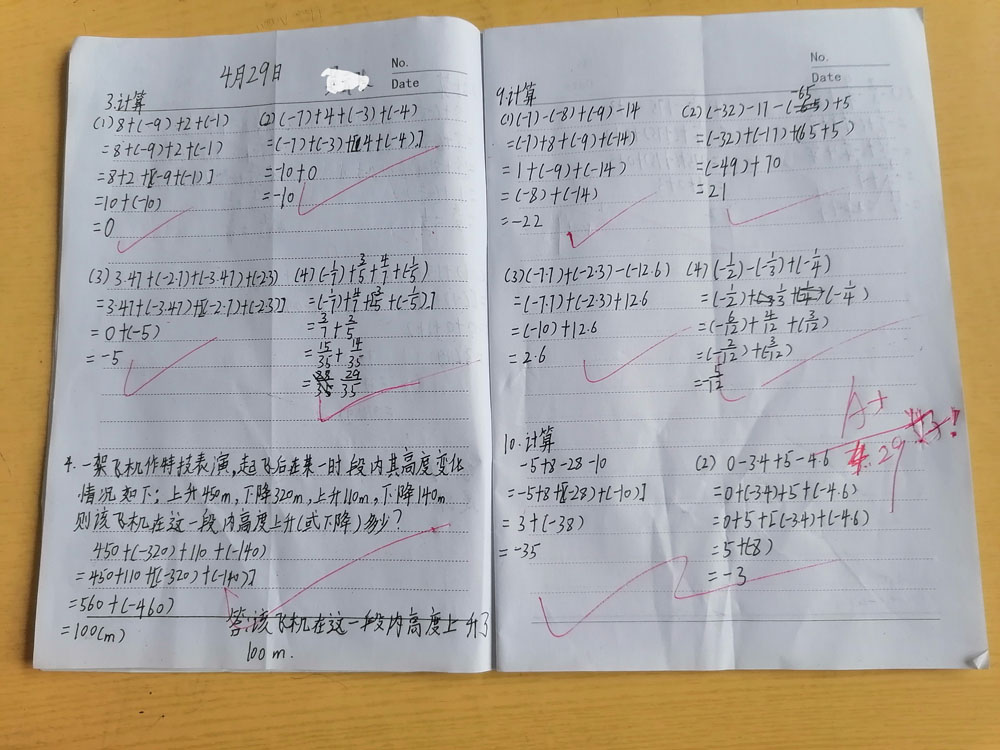 4月29日
No.
Date
3.计算
(1) 8+(-9)+2+(-1)
=8+(-9)+2+(-1)
=8+2+[-9+(-1)]
=10+(-10)
=0
(2) (-7)+4+(-3)+(-4)
=(-7)+(-3)+[4+(-4)]
=-10+0
=-10
(3) 3.47+(-2.7)+(-3.47)+(-2.3)
=3.47+(-3.47)+[(-2.7)+(-2.3)]
=0+(-5)
=-5
(4) (-1/7)+3/5+4/7+(-1/5)
=(-1/7)+4/7+[3/5+(-1/5)]
=3/7+2/5
=15/35+14/35
=29/35
4. 一架飞机作特技表演,起飞后在某一时段内其高度变化
情况如下;上升450m,下降320m,上升110m,下降140m
则该飞机在这一段内高度上升(或下降)多少?
450+(-320)+110+(-140)
=450+110+[(-320)+(-140)]
=560+(-460)
=100(m)
答:该飞机在这一段内高度上升了
100m.
No.
Date
9.计算
(1) (-7)-(-8)+(-9)-14
=(-7)+8+(-9)+(-14)
=1+(-9)+(-14)
=(-8)+(-14)
=-22
(2) (-32)-17-(-65)+5
=(-32)+(-17)+(65+5)
=(-49)+70
=21
(3) (-7.7)+(-2.3)-(-12.6)
=(-7.7)+(-2.3)+12.6
=(-10)+12.6
=2.6
(4) (-1/2)-(-1/3)+(-1/4)
=(-1/2)+1/3+(-1/4)
=(-6/12)+4/12+(-3/12)
=(-2/12)+(-3/12)
=-5/12
A+
4.29
10.计算
-5+8-28-10
=-5+8+[(-28)+(-10)]
=3+(-38)
=-35
(2) 0-3.4+5-4.6
=0+(-3.4)+5+(-4.6)
=0+5+[(-3.4)+(-4.6)
=5+(-8)
=-3